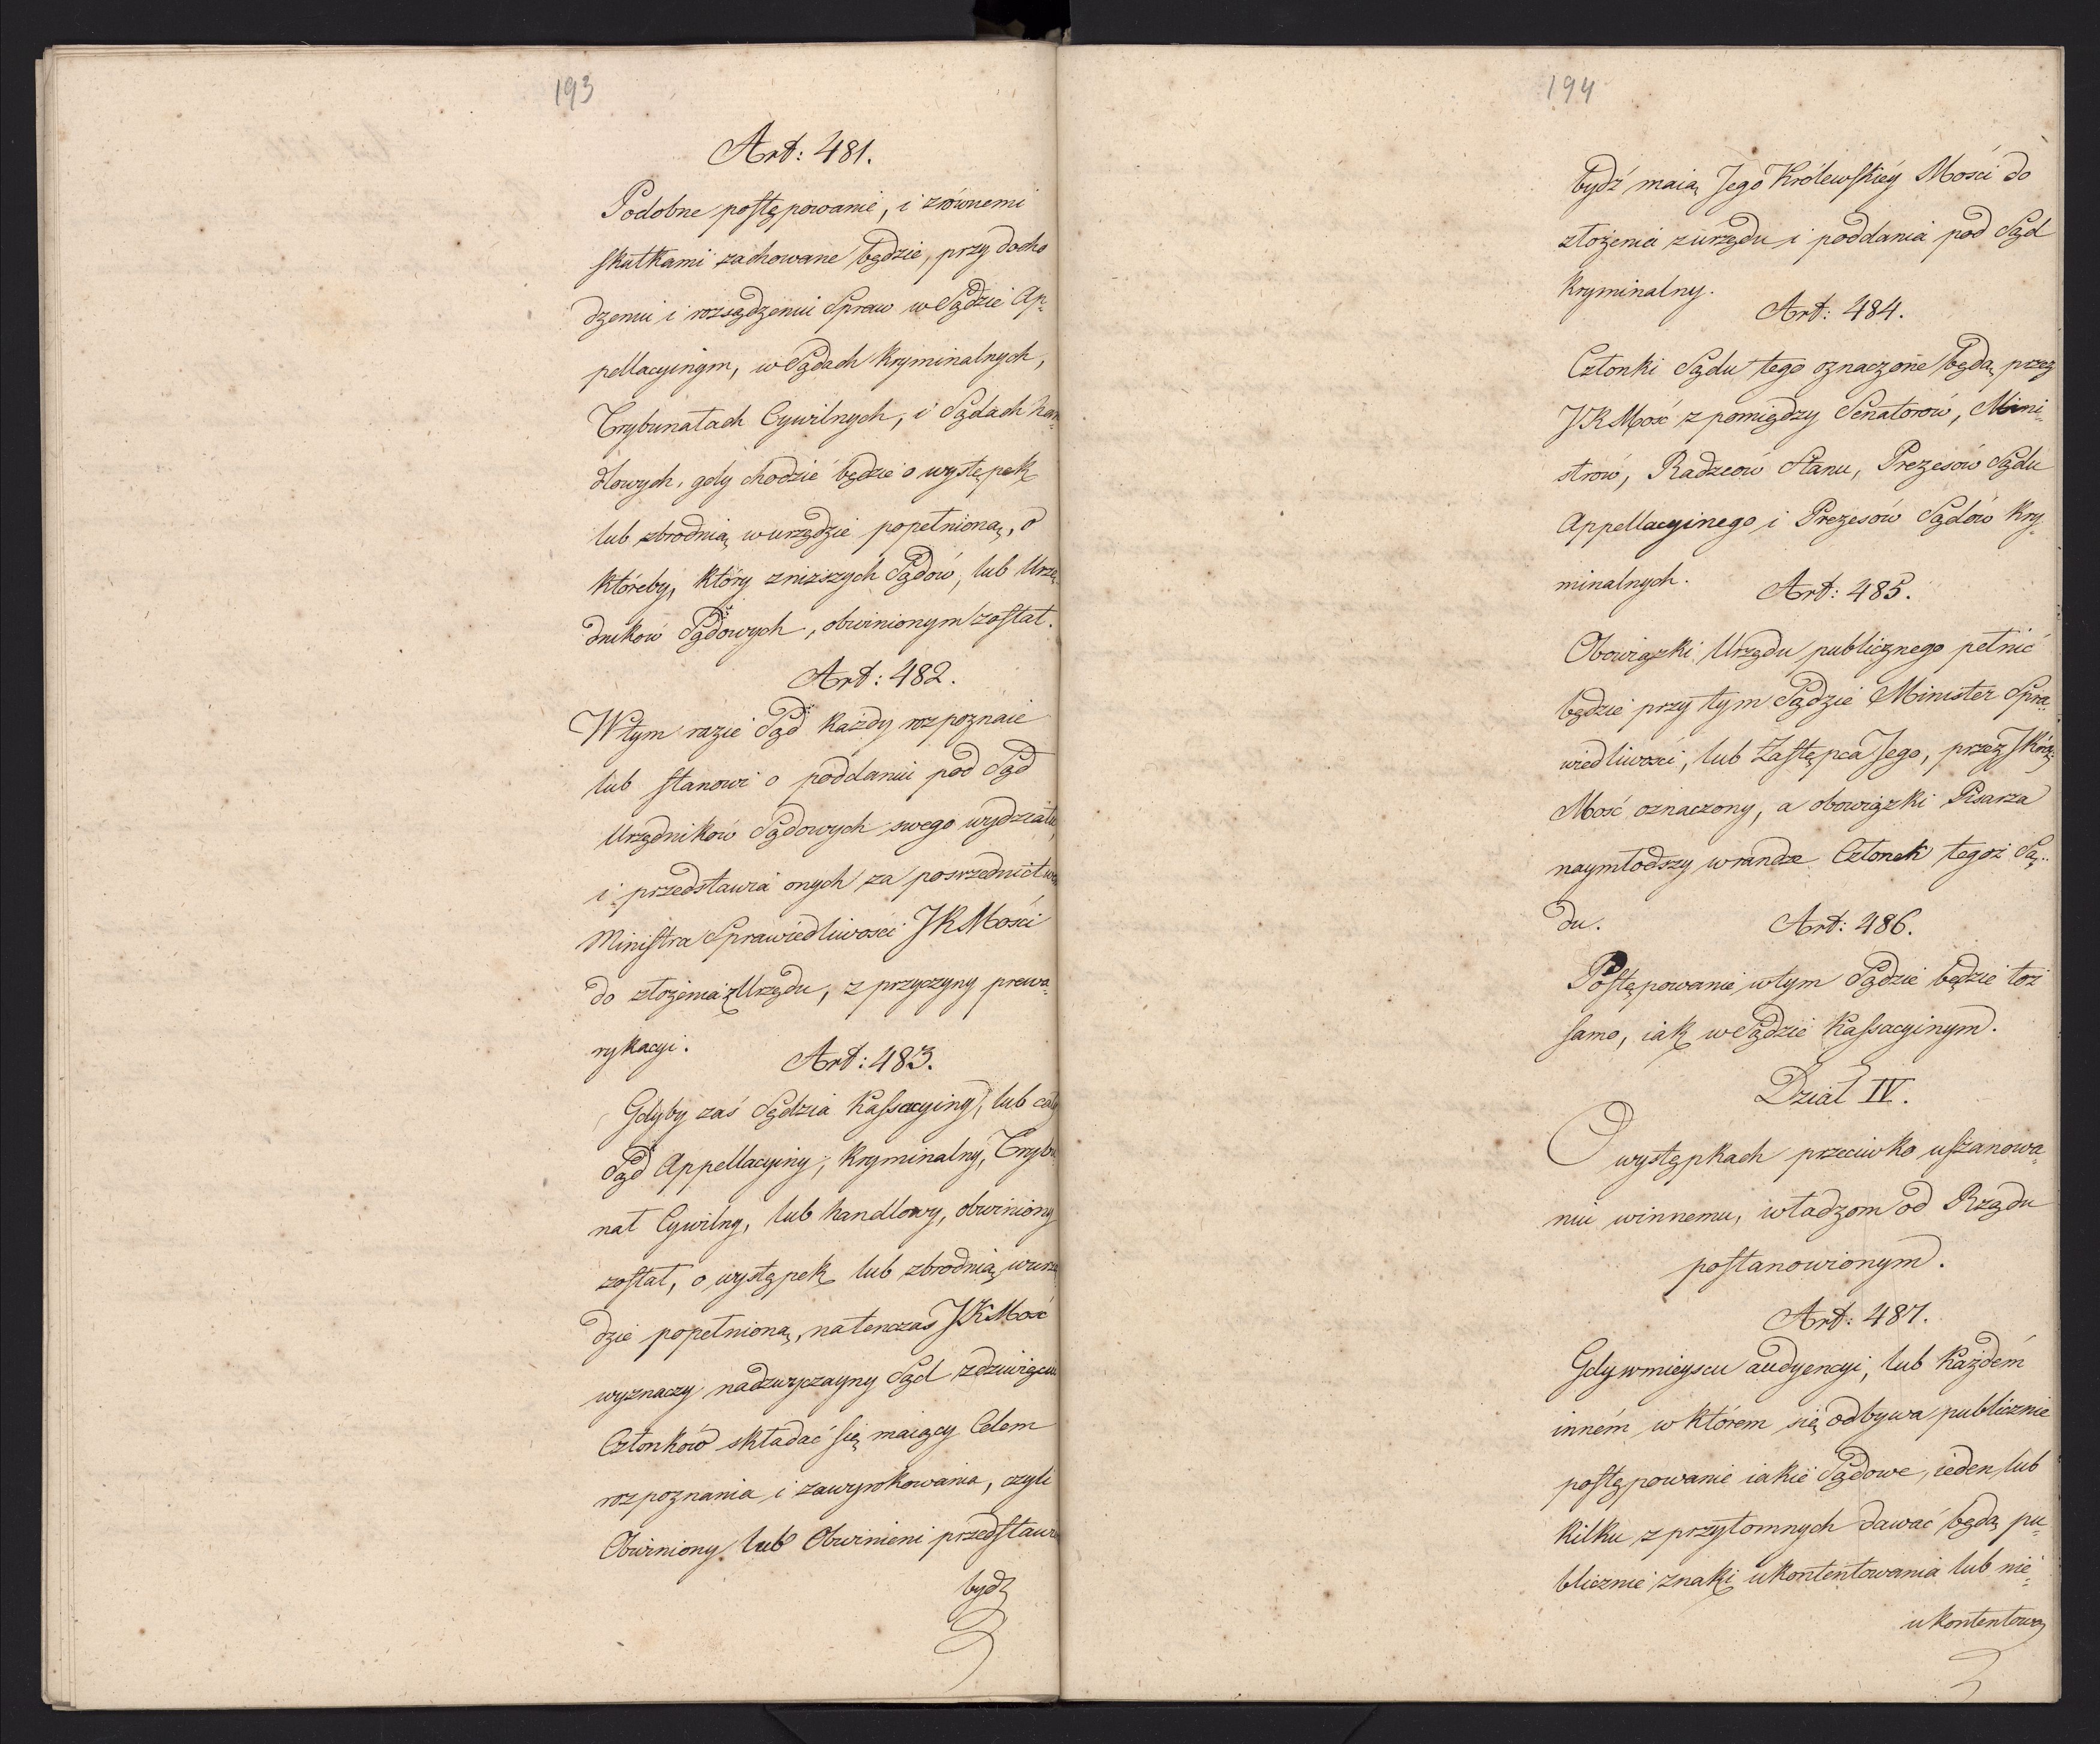 193
Art: 481.
Podobne postępowanie, i z rownemi
skutkami zachowane będzie, przy docho
dzeniu i rozsądzeniu Spraw w Sądzie Ap=
pellacyinym, w Sądach Kryminalnych,
Trybunałach Cywilnych, i Sądach han=
dlowych, gdy chodzić będzie o występek
lub zbrodnią w urzędzie popełnioną, o
któreby, który z niższych Sądów, lub Urzę
dników Sądowych, obwinionym został.
Art: 482.
W tym razie Sąd każdy rozpoznaie
lub stanowi o poddaniu pod Sąd
Urzędników Sądowych swego wydziału,
i przedstawia onych za posrzednictwem
Ministra Sprawiedliwosci JKMości
do złożenia z Urzędu, z przyczyny prewa=
rykacyi.
Art: 483.
Gdyby zaś Sędzia Kassacyiny, lub cały
Sąd Appellacyiny, Kryminalny, Trybu
nał Cywilny, lub handlowy, obwiniony
został, o występek lub zbrodnią w urzę
dzie popełnioną, natenczas JKMość
wyznaczy nadzwyczayny Sąd z dziwięciu
Członków składać się maiący Celem
rozpoznania i zawyrokowania, czyli
Obwiniony lub Obwinieni przedstawie
bydź
194
bydź maią Jego Królewskiéy Mości do
złożenia z urzędu i poddania pod Sąd
Kryminalny.
Art: 484.
Członki Sądu tego oznaczone będą przez
JKMość z pomiędzy Senatorów, Mini=
strów, Radzców Stanu, Prezesów Sądu
Appellacyinego i Prezesów Sądów Kry=
minalnych.
Art: 485.
Obowiązki Urzędu publicznego pełnić
będzie przy tym Sądzie Minister Spra=
wiedliwosci, lub Zastępca Jego, przez JKró=
Mość oznaczony, a obowiązki Pisarza
naymłodszy w randze Członek tegoż Są=
du.
Art: 486.
Postępowanie w tym Sądzie będzie toż
samo, iak w Sądzie Kassacyinym.
Dział IV.
O występkach przeciwko uszanowa=
niu winnemu, władzom od Rządu
postanowionym.
Art: 487.
Gdy w mieyscu audyencyi, lub każdém
inném w którem się odbywa publicznie
postępowanie iakie Sądowe, ieden lub
kilku z przytomnych dawać będą pu=
blicznie znaki ukontentowania lub nie=
ukontentowa